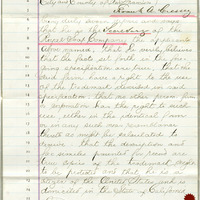 City and County of San Francisco
being duly sworn deposes and says
that he is the Secretary of the
Company
above named, that he verily believes
that the facts set forth in the
going specification are true; that the
said firm have a right to the use
of the Trademark described in said
specification; that no other firm
or corporation has the right to such
use, either in the identical form
or in any such near resemblance
thereto as might be calculated to
deceive; that the description and
fac similes presented for record are
true copies of the Trademark sought
to be protected and that he is a
citizen of the United States and is
domiciled in the State of California